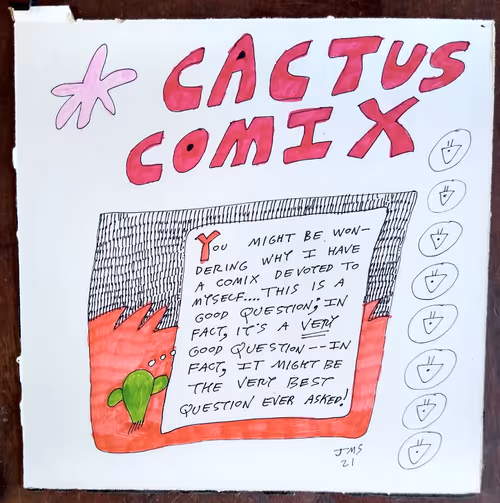 CACTUS
COMIX
YOU MIGHT BE WON-
DERING WHY I HAVE
A COMIX DEVOTED TO
MYSELF.... THIS IS A
GOOD QUESTION; IN
FACT, IT'S A VERY
GOOD QUESTION -- IN
FACT, IT MIGHT BE
THE VERY BEST
QUESTION EVER ASKED!
JMS
21